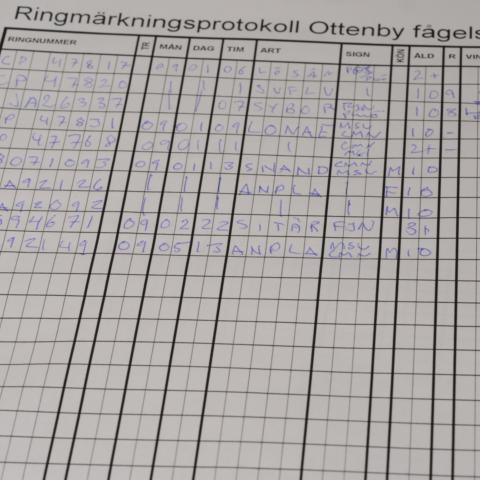 Ringmärkningsprotokoll Ottenby fågels
RINGNUMMER TR MÅN DAG TIM ART SIGN KÖN ÅLD R VIN
CP 47817 09 01 06 LÖSÅN 2+
CP 47820 1 SVFLV 1 10 9
JA26337 07 SYBOR 10 8
P 47831 09 01 09 LOMAE MSV CMN 10 -
P 47768 09 01 11 2+ -
8071093 09 01 13 SNAND CMN MSV M 10
A92126 ANPLA F 10
A92092 M 10
94671 09 02 22 SITÄR FJN 3+
92149 09 05 13 ANPLA MSV CMN M 10